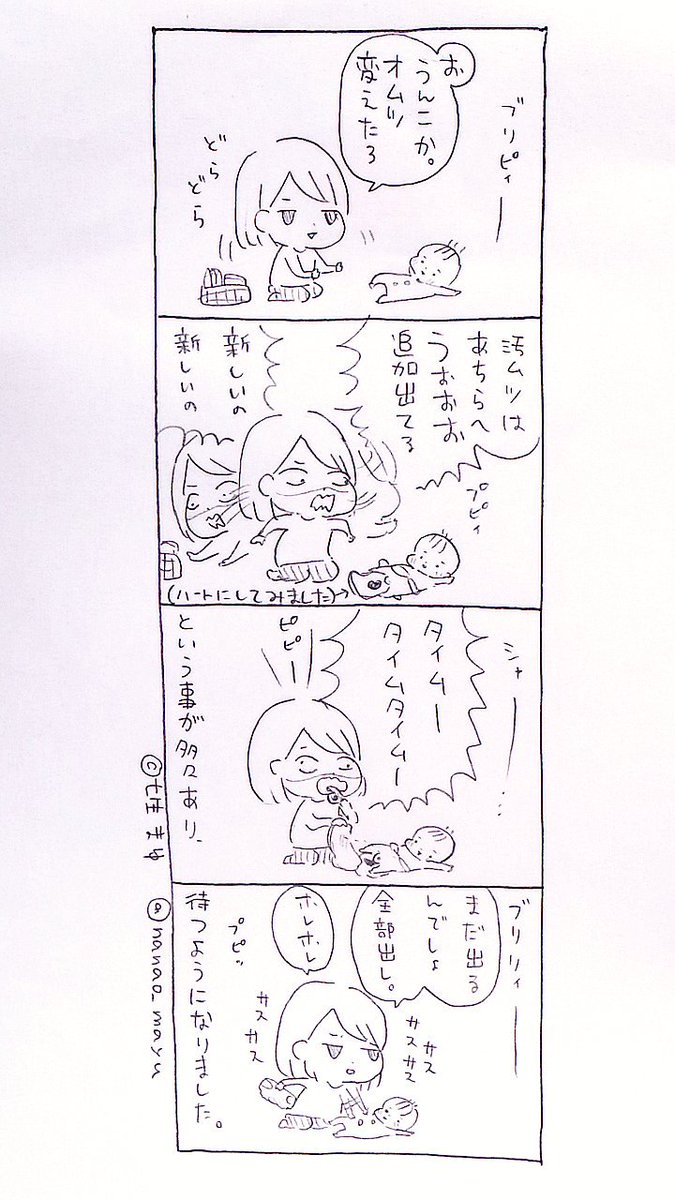 ブリピィー
お
うんこか。
オムツ
変えたろ
どら
どら
汚ムツは
あちらへ
うぉおお
追加出てる
プピィ
新しいの
新しいの
(ハートにしてみました)→
シャー…
タイムー
タイムタイムー
ピピー
という事が多々あり、
ブリリィー
まだ出る
んでしょ
全部出し。
ホレホレ
サス
サスサス
サス
サス
プピッ
待つようになりました。
@nanao_mayu